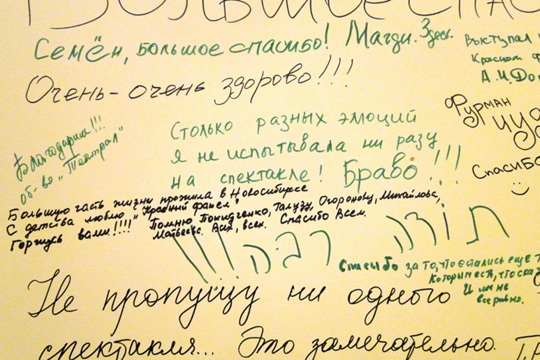 Большое спас
Семён, большое спасибо! Магди. Здесь.
Очень-очень здорово!!!
выступал
Красном
А.И.
Фурман
чуд
Спасибо
Благодарим!!!
об-во "Театрал"
Столько разных эмоций
я не испытывала ни разу
на спектакле! Браво!!!
Большую часть жизни прожила в Новосибирске
С детства люблю "Красный факел"
Горжусь вами!!!!
Помню Покидченко, Талузу, Огородову, Михайлова,
Матвеева. Всех, всех. Спасибо Всем.
תודה
רבה!!!
Спасибо за то, что остались ещё т
которым есть, что ска
и им не
всё равно.
Не пропущу ни одного
спектакля... Это замечательно.